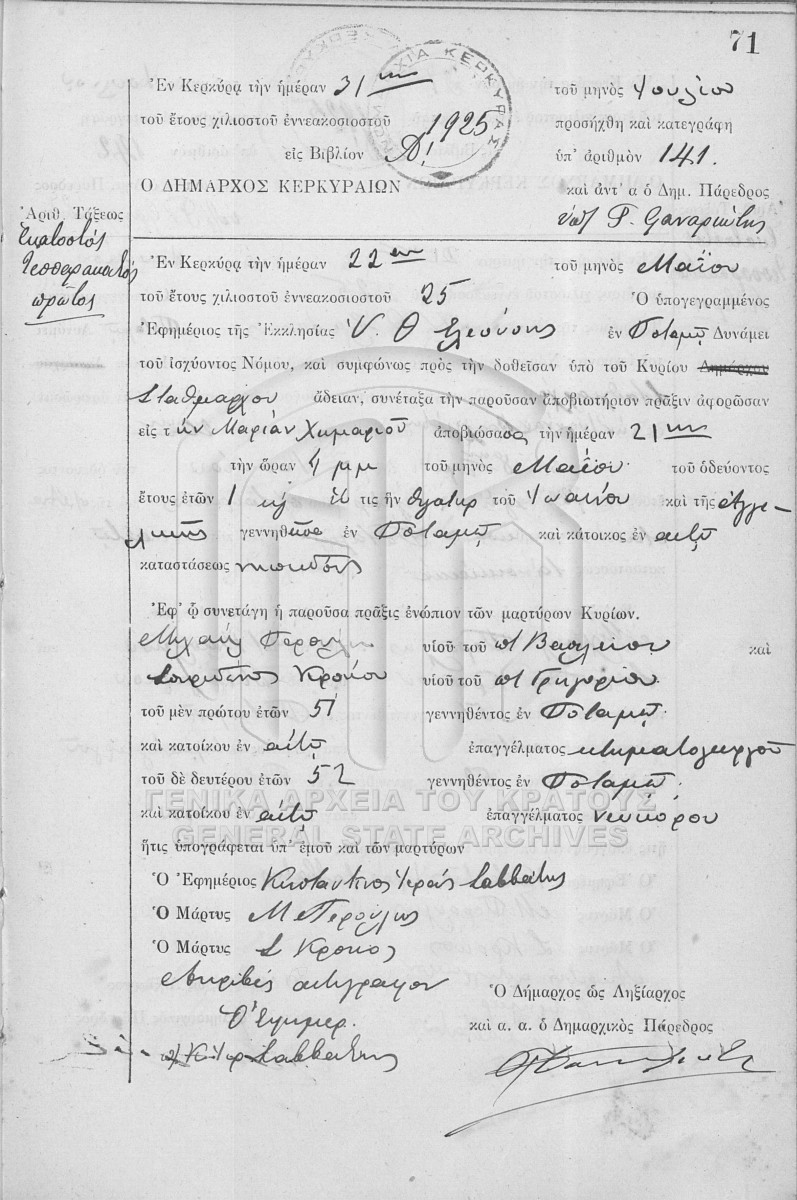 71
Ἐν Κερκύρᾳ τὴν ἡμέραν 31ην τοῦ μηνὸς Ἰουλίου
τοῦ ἔτους χιλιοστοῦ ἐννεακοσιοστοῦ 1925 προσήχθη καὶ κατεγράφη
εἰς Βιβλίον Α! ὑπ' ἀριθμὸν 141.
Ο ΔΗΜΑΡΧΟΣ ΚΕΡΚΥΡΑΙΩΝ καὶ ἀντ' α ὁ Δημ. Πάρεδρος
Ἀριθ. Τάξεως
Ἑκατοστός
τεσσαρακοστός
πρῶτος
Ἐν Κερκύρᾳ τὴν ἡμέραν 22αν τοῦ μηνὸς Μαΐου
τοῦ ἔτους χιλιοστοῦ ἐννεακοσιοστοῦ 25 Ὁ ὑπογεγραμμένος
Ἐφημέριος τῆς Ἐκκλησίας Υ. Θ Ἐλεούσης ἐν Ποταμῷ Δυνάμει
τοῦ ἰσχύοντος Νόμου, καὶ συμφώνως πρὸς τὴν δοθεῖσαν ὑπὸ τοῦ Κυρίου Δημάρχου
Σταθμάρχου ἄδειαν, συνέταξα τὴν παροῦσαν ἀποβιωτήριον πρᾶξιν ἀφορῶσαν
εἰς τὴν Μαρίαν Χυμαριοῦ ἀποβιώσασα τὴν ἡμέραν 21ην
τὴν ὥραν 4 μμ τοῦ μηνὸς Μαΐου τοῦ ὁδεύοντος
ἔτους ἐτῶν 1 τις ἦν θυγάτηρ τοῦ Ἰωάννου καὶ τῆς Ἀγγε-
λικῆς γεννηθεῖσα ἐν Ποταμῷ καὶ κάτοικος ἐν αὐτῷ
καταστάσεως
Ἐφ' ᾧ συνετάγη ἡ παροῦσα πρᾶξις ἐνώπιον τῶν μαρτύρων Κυρίων.
Μιχαήλ Περούλη υἱοῦ τοῦ π. Βασιλείου καὶ
Σπυρίδωνος Κρόκου υἱοῦ τοῦ π. Γρηγορίου
τοῦ μὲν πρώτου ἐτῶν 51 γεννηθέντος ἐν Ποταμῷ
καὶ κατοίκου ἐν αὐτῷ ἐπαγγέλματος κτηματογεωργοῦ
τοῦ δὲ δευτέρου ἐτῶν 52 γεννηθέντος ἐν Ποταμῷ
ΓΕΝΙΚΑ ΑΡΧΕΙΑ ΤΟΥ ΚΡΑΤΟΥΣ
καὶ κατοίκου ἐν αὐτῷ ἐπαγγέλματος νεωκόρου
GENERAL STATE ARCHIVES
ἥτις ὑπογράφεται ὑπ' ἐμοῦ καὶ τῶν μαρτύρων
Ὁ Ἐφημέριος Κωσταντῖνος Ἱερεύς Σαββάνης
Ὁ Μάρτυς Μ Περούλης
Ὁ Μάρτυς Σ Κρόκος
Ἀκριβές ἀντίγραφον
Ὁ Δήμαρχος ὡς Ληξίαρχος
Ὁ Ἐφημερ.
καὶ α. α. ὁ Δημαρχικὸς Πάρεδρος
Σαββάνης